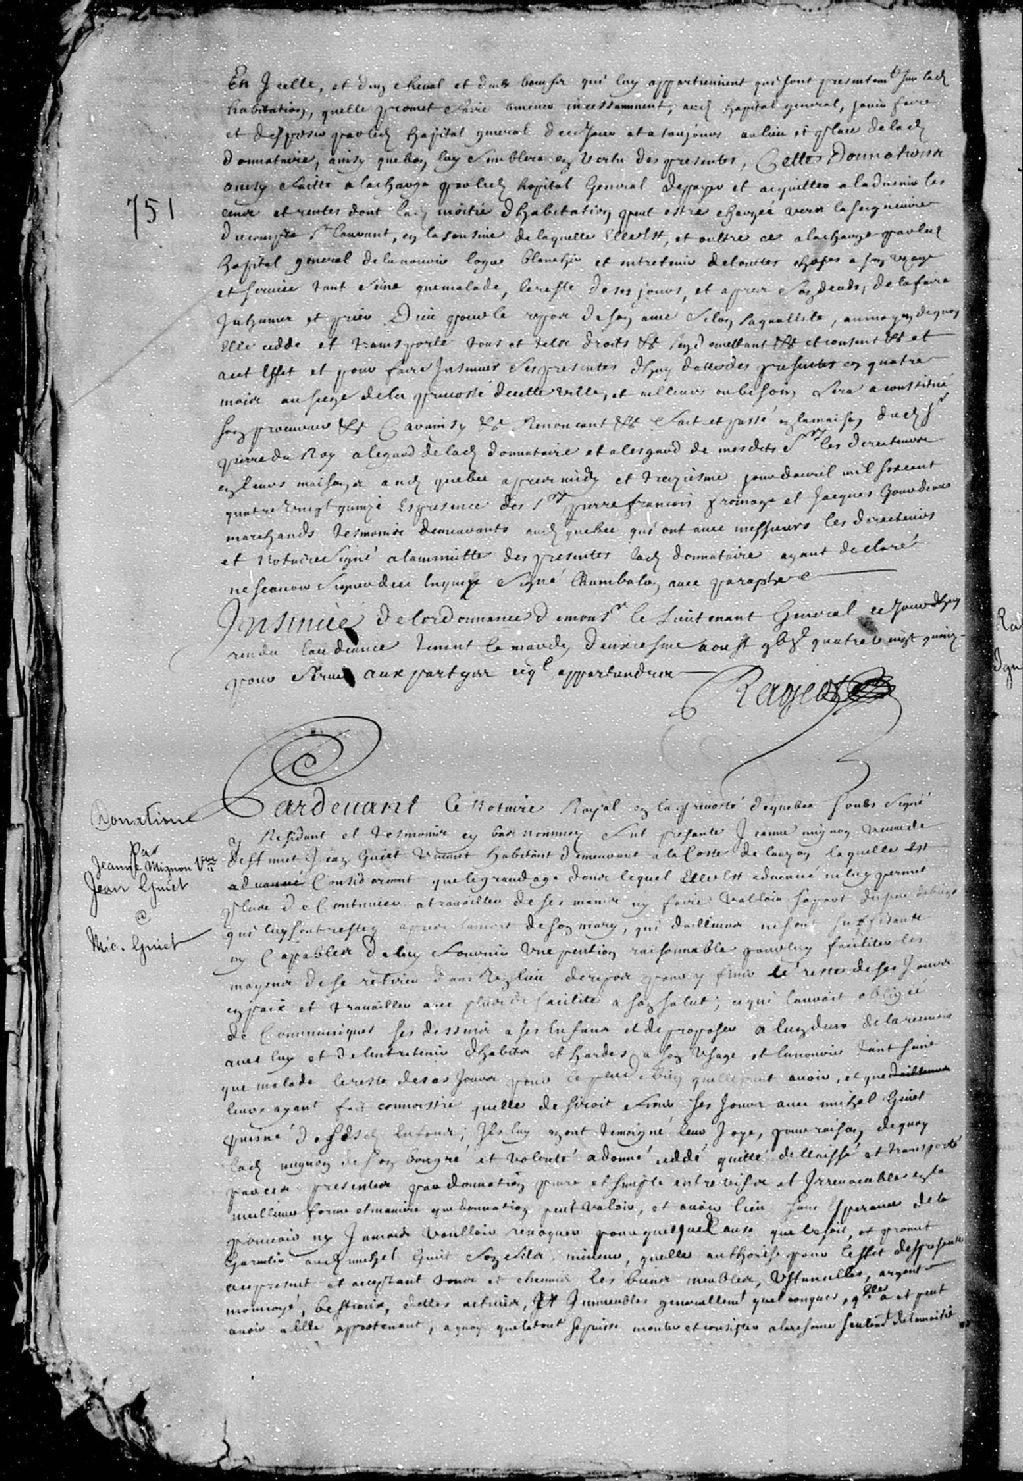 En Jcelle, et dun cheval et deux boeufs qui luy appartiennent qui sont presentemt sur lad
habitation, quelle promet faire amener incessamment, aud hopital general, pour faire
et disposer par led hopital general de ce Jour et a toujours au lieu et place de lad
donnatrice, ainsy que bon luy semblera en vertu des presentes, Cette Donnation
ainsy faitte a la charge par led hopital General de payer et acquitter a ladvenir les
cens et rentes dont lad moitié dhabitation peut estre chargée vers la seigneurie
du compte St laurent, en la censive de laquelle Elle Est, et outre ce a la charge par led
hopital general de la nourir loger blanchir et entretenir de touttes choses a son usage
et service tant saine que malade, le reste de ses jours, et apres son deceds, de la faire
Inhumer et prier Dieu pour le repos de son ame selon sa quallité, au moyen de quoy
Elle cedde et transporte tous et telx droits &t sen demettant &t et consent &t et
a cet Effet et pour faire Insinuer ses presentes dhuy dattes des presentes en quatre
mois au siege de la prevosté de cette ville, et ailleurs ou besoin sera a constitué
son procureur &t Car ainsy &t Renoncant &t fait et passé en la maison dud Sr
pierre du Roy a legard de lad donnatrice et a lesgard de mesdits Srs les directeurs
en leurs maisons aud quebec apres midy et treiziesme jour davril mil sixcent
quatre vingt quinze Es presence des Srs pierre francois fromage et Jacques Gourdeau
marchands tesmoins demeurants aud quebec qui ont avec messieurs les directeurs
et Notaire signé a la minutte des presentes lad donnatrice ayant declaré
ne scavoir signer de ce Enquise signé Chambalon avec paraphe
Jnsinuée de lordonnance de monsr le lieutenant General ce Jourdhuy
rendu laudiance tenant le mardy deuxiesme aoust gbjc quatre vingt quinze
pour servir aux partyes ce ql appartiendra
Rageot
751
Pardevant le Notaire Royal en la prevosté de quebec soubs signé
Residant et tesmoins en bas nommez fut presente Jeanne mignon veuve de
deffunct Jean Guiet vivant habitant demeurant a la Coste de lauzon laquelle
Considerant que le grand age dans lequel Elle Est advancée ne luy permet
plus de Continuer a travailler de ses mains ny faire valloir
qui luy sont restez apres la mort de son mary, qui dailleurs ne sont suffisants
ny Capables de luy fournir une pention raisonnable pour luy faciliter les
moyens de se retirer dans un lieu de repos pour y finir le reste de ses Jours
en paix et travailler avec plus de facilité a son salut; ce qui lauroit obligée
de Communiquer ses desseins a ses Enfans et de proposer a lun deux de la retirer
avec luy et de lentretenir dhabits et hardes a son Usage et la nourir tant saine
que malade le reste de ses Jours pour ce peu de bien quelle peut avoir, et que
leurs ayant fait connoistre quelle desiroit finir ses Jours avec michel Guiet
puisné de sesd Enfans; Jls luy en ont temoigné leur Joye, pour raison de quoy
lad mignon de son bongré et volonté a donné cedde quitté delaissé et transporté
par ces presentes par donnation pure et simple entre vifs et Irrevocables en la
meilleure forme et maniere que donnation peut valoir, et avoir lieu sans Esperance de la
pouvoir ny Jamais voulloir revoquer pour quelque Cause que ce soit, et promet
Garentir aud michel Guiet son fils mineur, quelle authorise pour leffet des presentes
ce present et acceptant tous et chacuns les biens meubles, Ustancilles, argent
monnoyé, bestiaux, dettes actives, Et Jmmeubles generallemt quelconques, qlle a et peut
avoir a Elle appartenant, a quoy que le tout se puisse monter et consister a la reserve seulemt de la moitié
Donation
Par
Jeanne Mignon Vve
Jean Guiet
@
Mic. Guiet